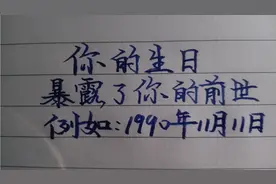 你的生日
暴露了你的前世
例如:1990年11月11日